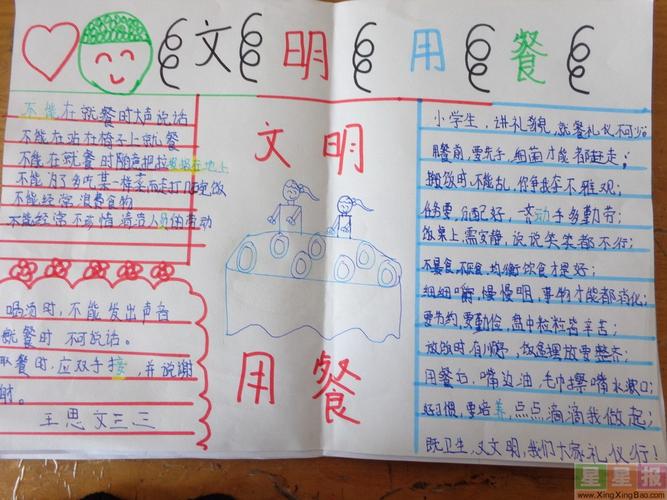 文明用餐
不能在就餐时大声说话
不能在站在椅子上就餐
不能在就餐时随意把垃圾路在地上
不能为了多吃某一样菜而走打贝宅饭
不能经常浪费食物
不能经常不珍惜清洁人员的劳动
喝汤时,不能发出声音
就餐时不可说话。
取餐时,应双手接,并说谢
谢。
王思文三三
文明
用餐
小学生,讲礼貌,就餐礼仪不可少
用餐前,要洗手,细菌才能都赶走;
搬饭时,不能乱,你争我夺不雅观;
任务要,分配好,一动手多勤劳;
饭桌上,需安静,说说笑笑都不行;
不暴食,不厌食,均衡饮食才是好;
细细嚼,慢慢咽,事物才能都消化;
要节约,要勤俭,盘中粒粒皆辛苦;
放饭时,有顺序,饭盒摆放要整齐;
用餐台,嘴边油,毛巾擦嘴水漱口;
好习惯,要培养,点点滴滴我做起;
既卫生,又文明,我们大家礼仪行!
星星报
www.XingXingBao.com